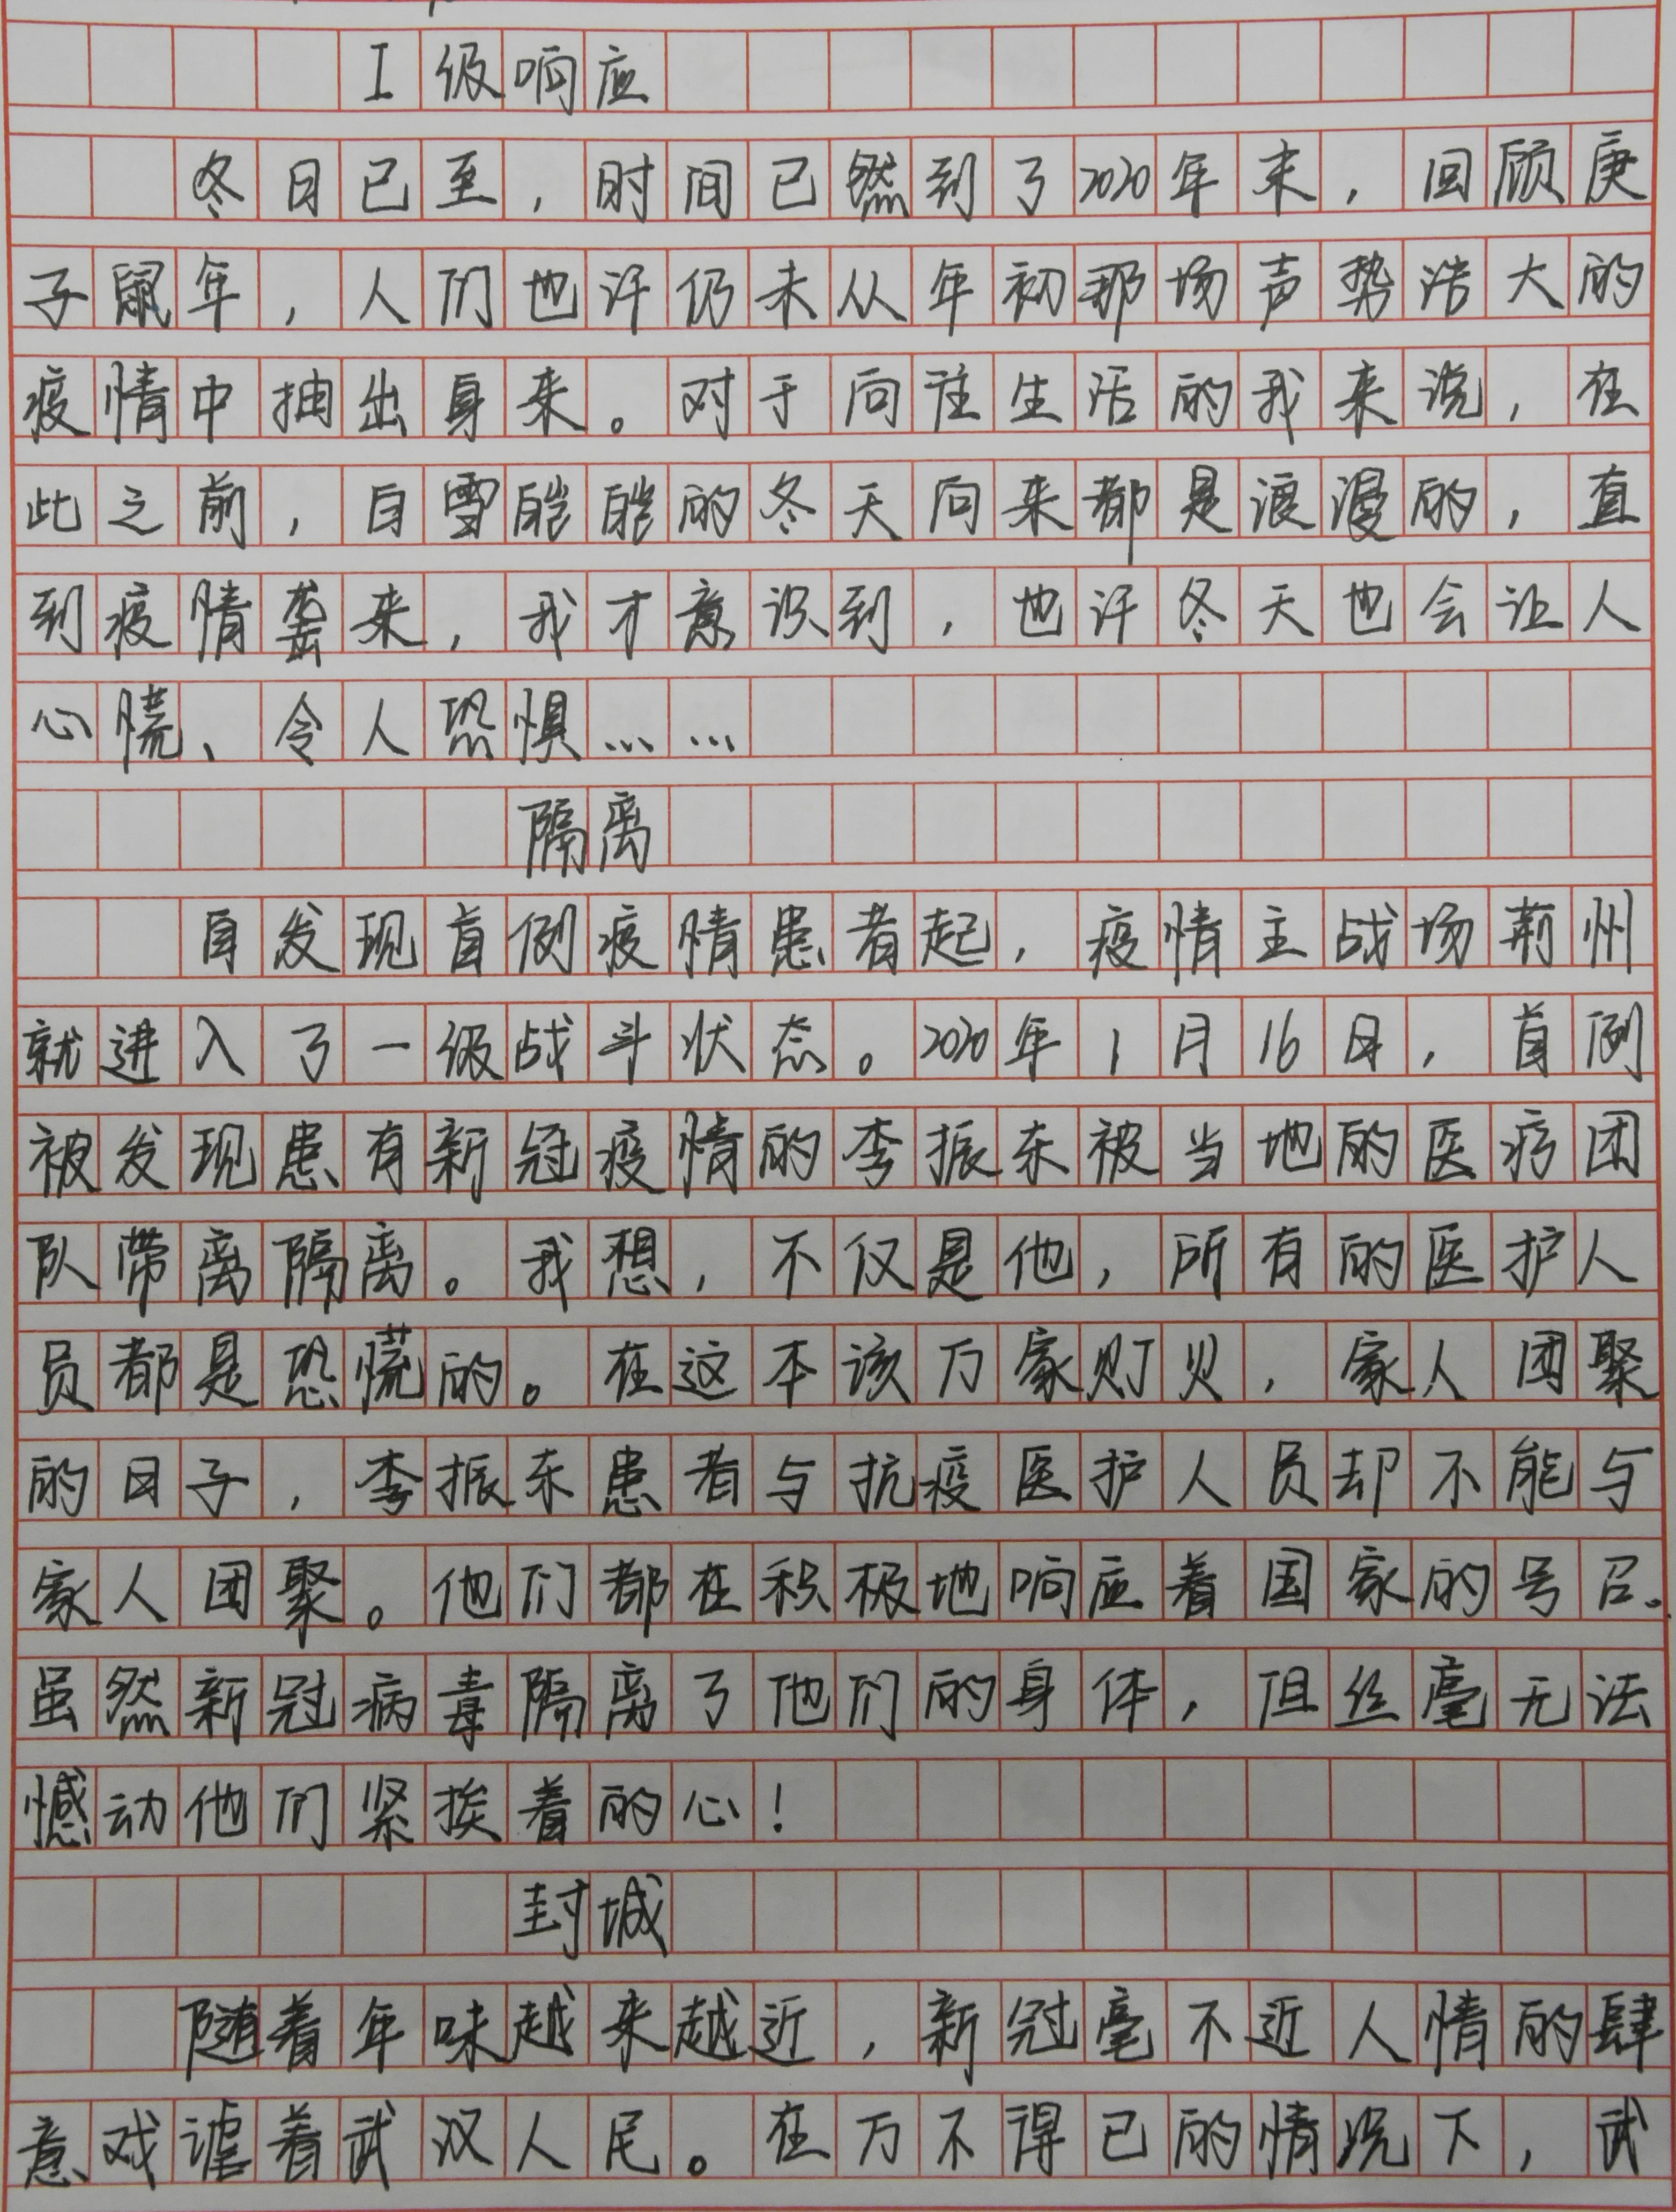 I级响应
冬日已至，时间已然到了2020年末，回顾庚
子鼠年，人们也许仍未从年初那场声势浩大的
疫情中抽出身来。对于向往生活的我来说，在
此之前，白雪皑皑的冬天向来都是浪漫的，直
到疫情袭来，我才意识到，也许冬天也会让人
心慌、令人恐惧……
隔离
自发现首例疫情患者起，疫情主战场荆州
就进入了一级战斗状态。2020年1月16日，首例
被发现患有新冠疫情的李振东被当地的医疗团
队带离隔离。我想，不仅是他，所有的医护人
员都是恐慌的。在这本该万家财贝，家人团聚
的日子，李振东患者与抗疫医护人员却不能与
家人团聚。他们都在积极地响应着国家的号召。
虽然新冠病毒隔离了他们的身体，但丝毫无法
憾动他们紧挨着的心！
封城
随着年味越来越近，新冠毫不近人情的肆
意戏谑着武汉人民。在万不得已的情况下，武